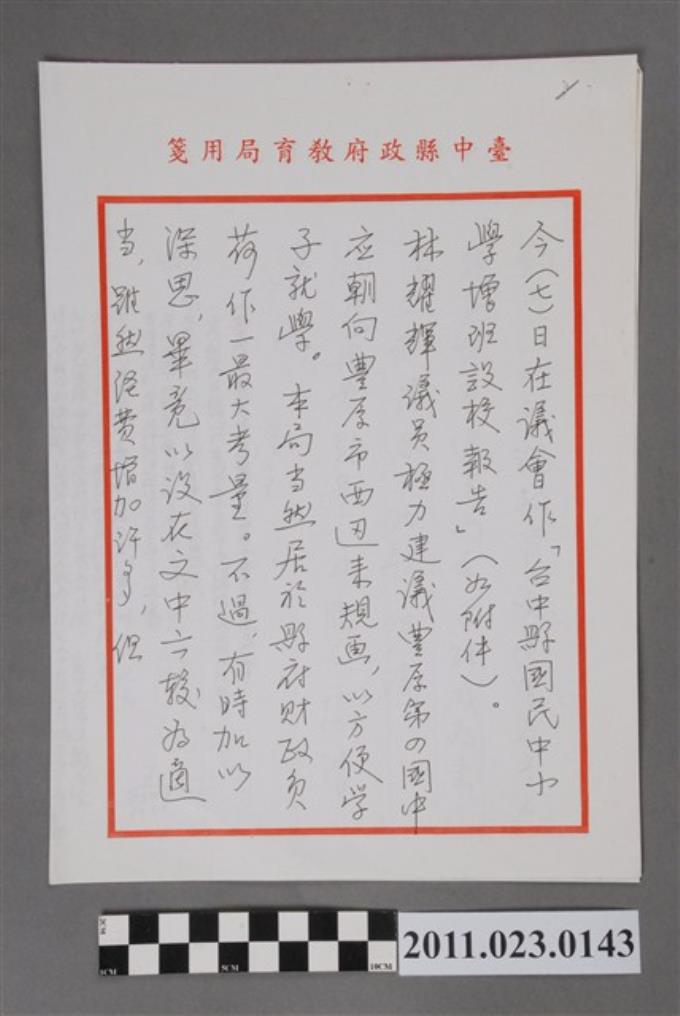 臺中縣政府教育局用箋
今(七)日在議會作「台中縣國民中小
學增班設校報告」(如附件)。
林耀輝議員極力建議豐原第四國中
应朝向豐原市西边來規画,以方便学
子就學。本局当然居於縣府財政負
荷作一最大考量。不過,有時加以
深思,畢竟以设在文中六較為適
当,雖然经費增加許多,但
5CM
10CM
2011.023.0143